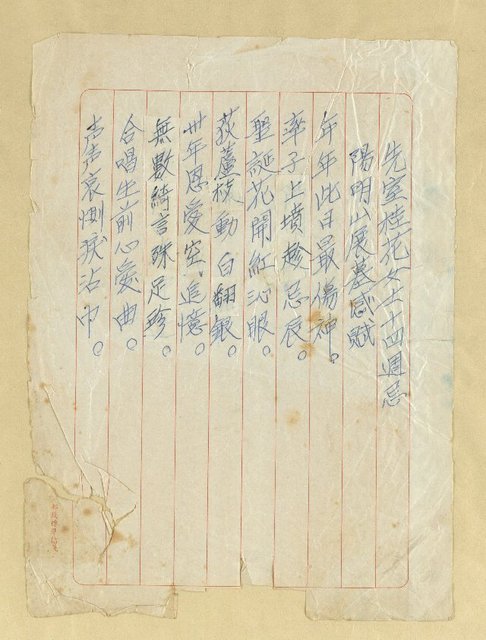 先室桂花女士十四週忌
陽明山展墓感賦
年年此日最傷神。
率子上墳趁忌辰。
聖誕花開紅沁眼。
荻蘆枝動白翻銀。
卅年恩愛空追憶。
無數綺言殊足珍。
合唱生前心愛曲。
声声哀惻淚沾巾。